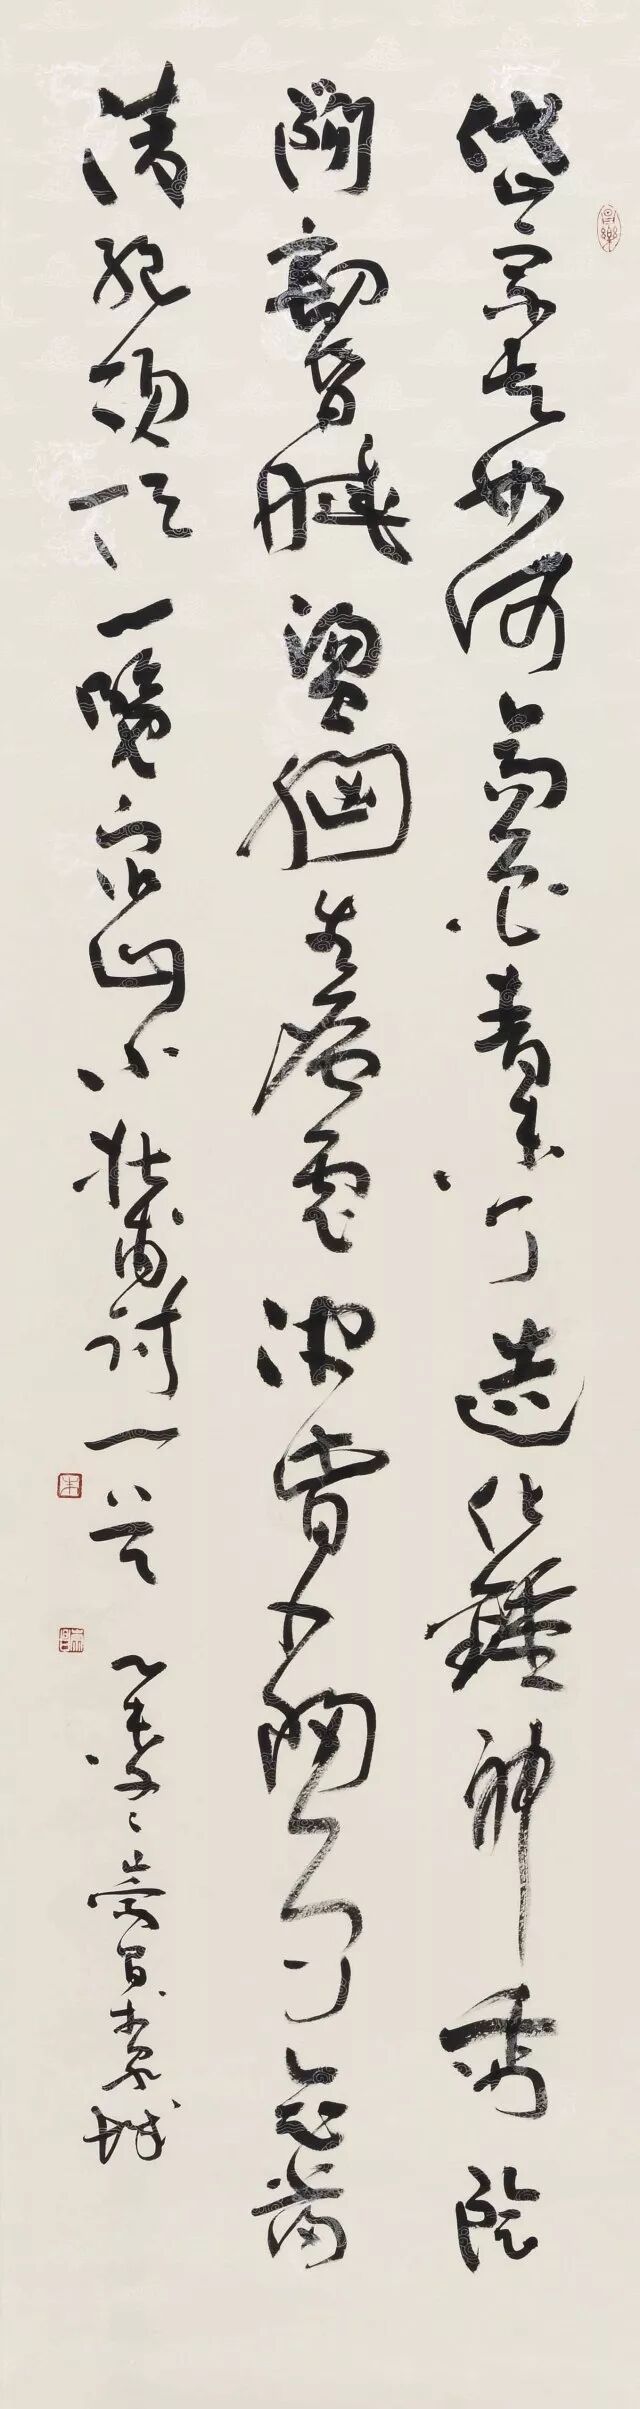 岱宗夫如何齊魯青未了造化鍾神秀陰
陽割昏曉盪胸生層雲決眥入歸鳥會當
凌絕頂一覽眾山小杜甫詩一首
乙未冬崇昌京城